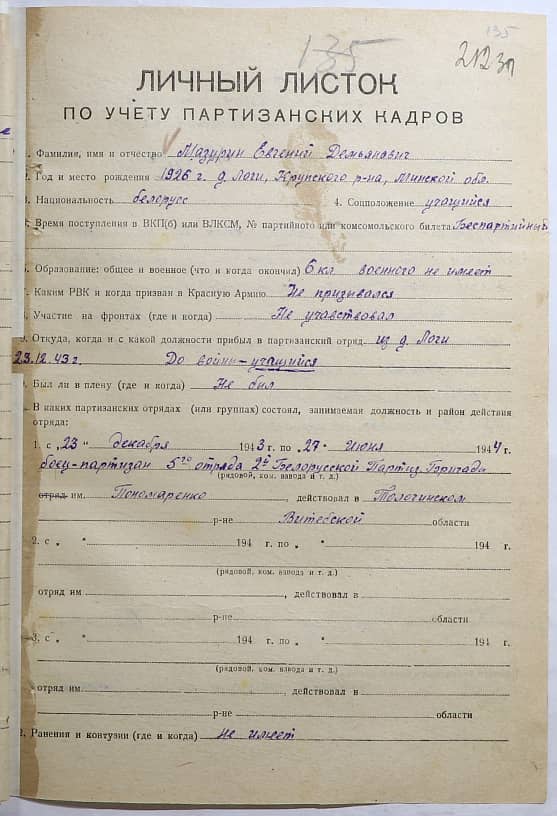 135
135
ЛИЧНЫЙ ЛИСТОК
ПО УЧЕТУ ПАРТИЗАНСКИХ КАДРОВ
Фамилия, имя и отчество Мазурин Евгений Демьянович
Год и место рождения 1926 г. д. Логи, Крупского р-на, Минской обл.
3. Национальность белорусс 4. Соцположение учащийся
Время поступления в ВКП(б) или ВЛКСМ, № партийного или комсомольского билета Беспартийный
Образование: общее и военное (что и когда окончил) 6 кл военного не имеет
Каким РВК и когда призван в Красную Армию Не призывался
Участие на фронтах (где и когда) Не учавствовал
Откуда, когда и с какой должности прибыл в партизанский отряд из д. Логи
23.12.43 г. До войны-учащийся
Был ли в плену (где и когда) Не был
В каких партизанских отрядах (или группах) состоял, занимаемая должность и район действия
отряда:
1. с „23" декабря 1943 г. по „27" июня 1944 г.
боец-партизан 5го отряда 2й Белорусской Партиз. Бригада
(рядовой, ком. взвода и т. д.)
отряд им. Пономаренко, действовал в Толочинском
р-не Витебской области
2. с „ " 194 г. по „ " 194 г.
(рядовой, ком. взвода и т. д.)
отряд им. , действовал в
р-не области
3. с „ " 194 г. по „ " 194 г.
(рядовой, ком. взвода и т. д.)
отряд им. , действовал в
р-не области
2. Ранения и контузии (где и когда) не имеет